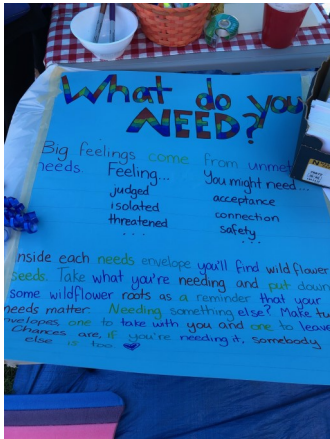 What do you
NEED?
Big feelings come from unmet
needs
Feeling...
judged
isolated
threatened
...
You might need...
acceptance
connection
safety
...
nside each needs envelope you'll find wildflower
seeds. Take what you're needing and put down
some wildflower roots as a reminder that your
needs matter. Needing something else? Make tw
nvelopes, one to take with you and one to leave
Chances are, if you're needing it, somebody
else is too